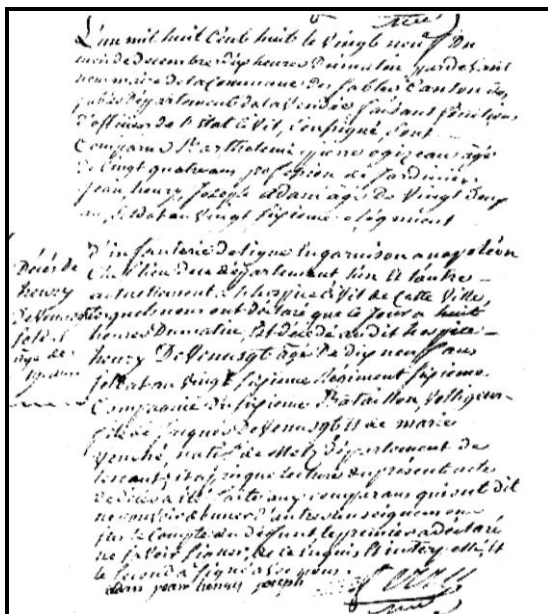 L'an mil huit Cent huit le Vingt neuf Du
mois de decembre dix heures Dumatin pardevant
nous maire de la Commune Des Sables Canton des
Sables Département de la Vendée faisant fonctions
d'officier de l'état Civil, Soussigné, Sont
Comparus Barthelemi pierre ageé
de Vingt quatre ans profession de Jardinier
jean henry Joseph adam agé De Vingt Deux
ans Soldat au Vingt Sixieme régiment
Décès de
henry
Soldat
agé de
19 ans
d'infanterie de ligne En garnison a napoléon
Chef lieu de ce département l'un Et l'autre
actuellement a l'hospice Civil de Cette Ville,
lesquels nous ont déclaré que ce Jour a huit
heures Dumatin, Est décédé au dit hospice
henry agé De dix neuf ans
soldat au Vingt Sixieme Régiment Sixieme
Compagnie du Sixieme Bataillon, Voltigeur
fils de Jaques et de marie
natif de Metz département de
lecture du présent acte
de décès a été faite aux comparans qui ont dit
ne pouvoir donner d'autres renseignemens
sur le Compte du défunt, le premier a déclaré
ne Savoir Signer, de ce Enquis Et interpellé, Et
le Second a Signé avec nous.
adam jean henry joseph